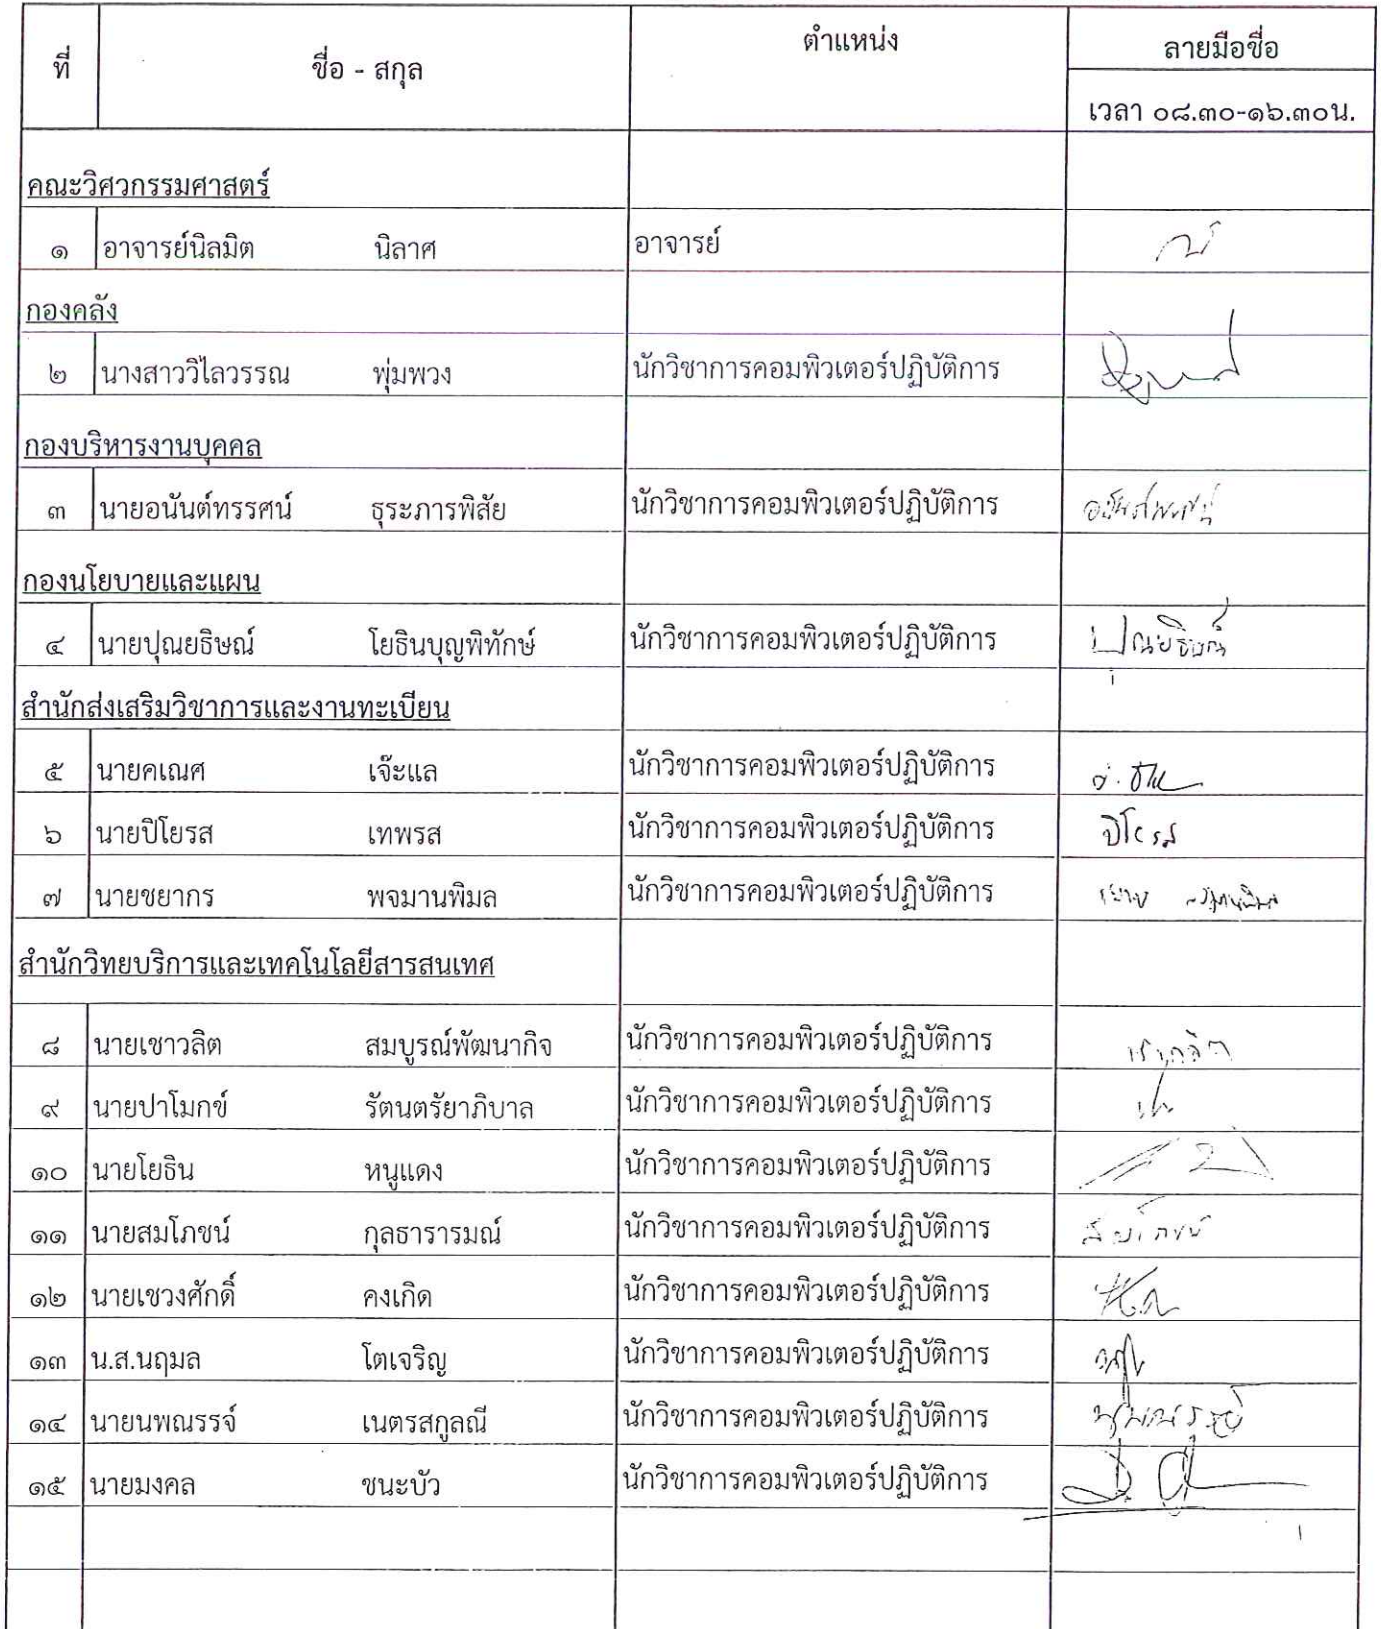 ที่ ชื่อ - สกุล ตำแหน่ง ลายมือชื่อ
เวลา ๐๘.๓๐-๑๖.๓๐น.
คณะวิศวกรรมศาสตร์
๑ อาจารย์นิลมิต นิลาศ อาจารย์
กองคลัง
๒ นางสาววิไลวรรณ พุ่มพวง นักวิชาการคอมพิวเตอร์ปฏิบัติการ
กองบริหารงานบุคคล
๓ นายอนันต์ทรรศน์ ธุระภารพิสัย นักวิชาการคอมพิวเตอร์ปฏิบัติการ
กองนโยบายและแผน
๔ นายปุณยธิษณ์ โยธินบุญพิทักษ์ นักวิชาการคอมพิวเตอร์ปฏิบัติการ ปุณยธิษณ์
สำนักส่งเสริมวิชาการและงานทะเบียน
๕ นายคเณศ เจ๊ะแล นักวิชาการคอมพิวเตอร์ปฏิบัติการ
๖ นายปิโยรส เทพรส นักวิชาการคอมพิวเตอร์ปฏิบัติการ ปิโยรส
๗ นายชยากร พจมานพิมล นักวิชาการคอมพิวเตอร์ปฏิบัติการ
สำนักวิทยบริการและเทคโนโลยีสารสนเทศ
๘ นายเชาวลิต สมบูรณ์พัฒนากิจ นักวิชาการคอมพิวเตอร์ปฏิบัติการ เชาวลิต
๙ นายปาโมกข์ รัตนตรัยาภิบาล นักวิชาการคอมพิวเตอร์ปฏิบัติการ
๑๐ นายโยธิน หนูแดง นักวิชาการคอมพิวเตอร์ปฏิบัติการ
๑๑ นายสมโภชน์ กุลธารารมณ์ นักวิชาการคอมพิวเตอร์ปฏิบัติการ สมโภชน์
๑๒ นายเชวงศักดิ์ คงเกิด นักวิชาการคอมพิวเตอร์ปฏิบัติการ
๑๓ น.ส.นฤมล โตเจริญ นักวิชาการคอมพิวเตอร์ปฏิบัติการ
๑๔ นายนพณรรจ์ เนตรสกูลณี นักวิชาการคอมพิวเตอร์ปฏิบัติการ
๑๕ นายมงคล ชนะบัว นักวิชาการคอมพิวเตอร์ปฏิบัติการ